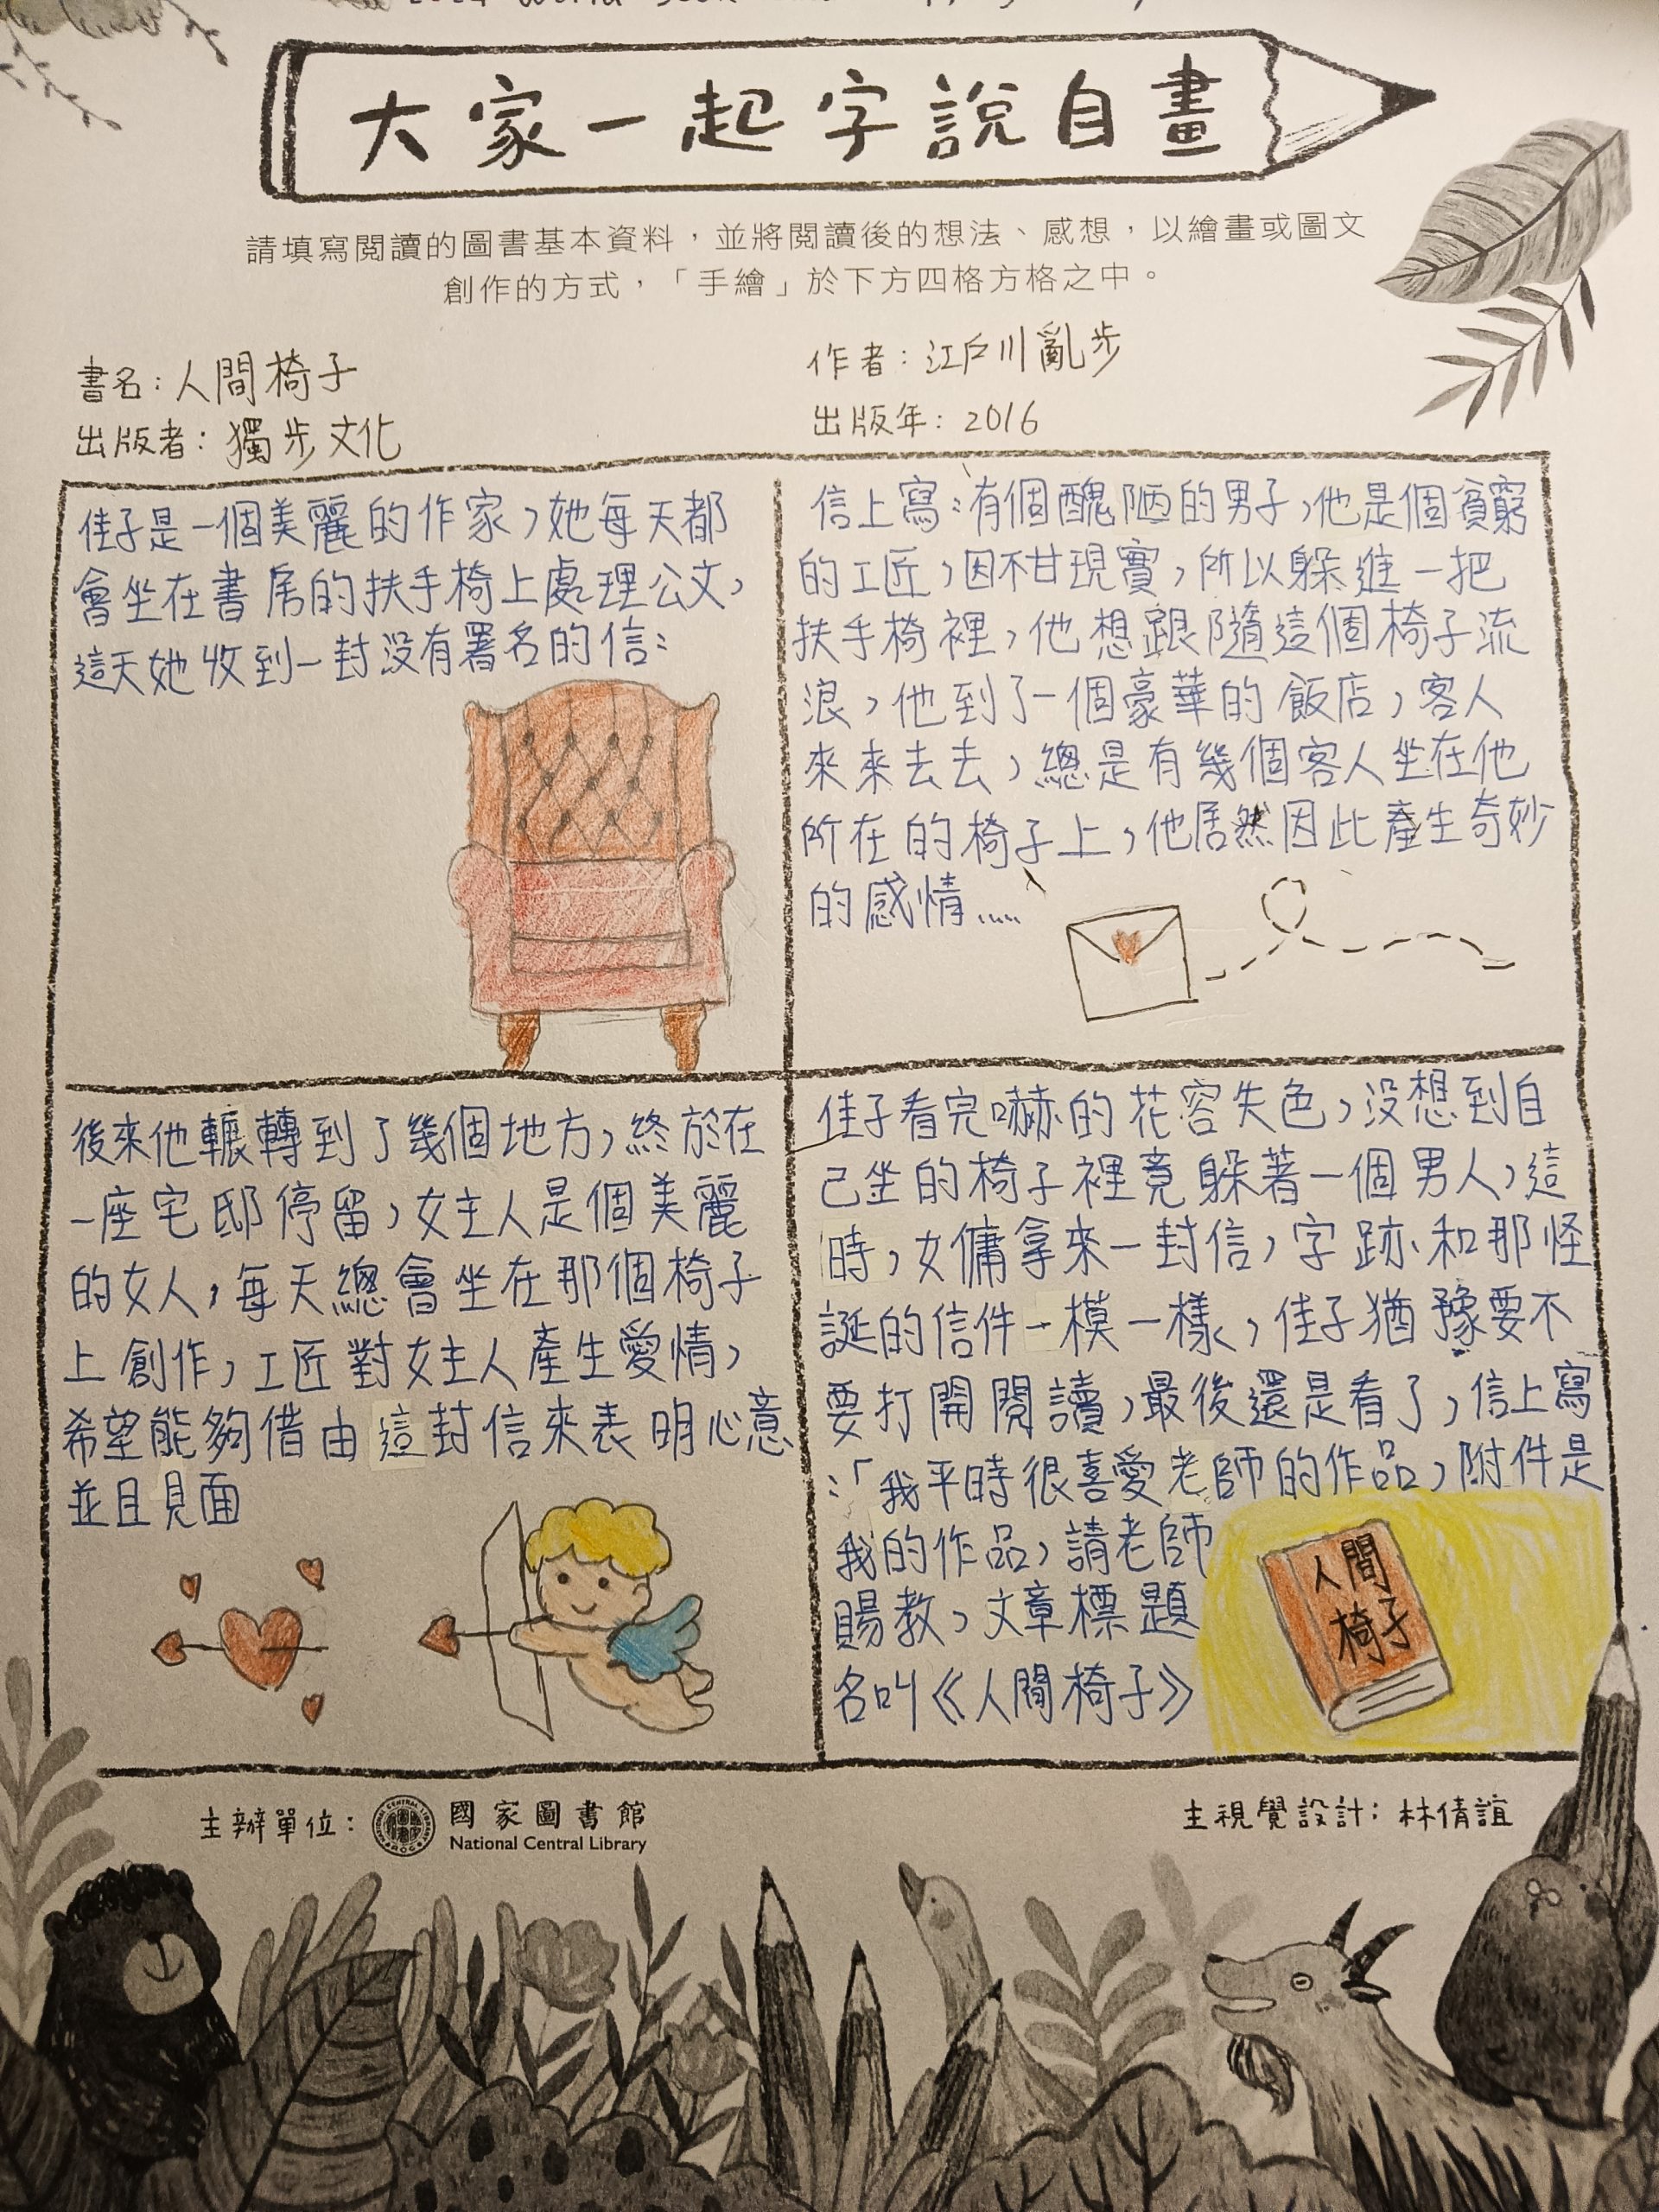 大家一起字說自畫
請填寫閱讀的圖書基本資料，並將閱讀後的想法、感想，以繪畫或圖文
創作的方式，「手繪」於下方四格方格之中。
書名：人間椅子
作者：江戶川亂步
出版者：獨步文化
出版年：2016
佳子是一個美麗的作家，她每天都
會坐在書房的扶手椅上處理公文，
這天她收到一封沒有署名的信：
信上寫：有個醜陋的男子，他是個貧窮
的工匠，因不甘現實，所以躲進一把
扶手椅裡，他想跟隨這個椅子流
浪，他到了一個豪華的飯店，客人
來來去去，總是有幾個客人坐在他
所在的椅子上，他居然因此產生奇妙
的感情……
後來他輾轉到了幾個地方，終於在
一座宅邸停留，女主人是個美麗
的女人，每天總會坐在那個椅子
上創作，工匠對女主人產生愛情，
希望能夠借由這封信來表明心意
並且見面
佳子看完嚇的花容失色，沒想到自
己坐的椅子裡竟躲著一個男人，這
時，女傭拿來一封信，字跡和那怪
誕的信件一模一樣，佳子猶豫要不
要打開閱讀，最後還是看了，信上寫
：「我平時很喜愛老師的作品，附件是
我的作品，請老師
賜教，文章標題
名叫《人間椅子》
人間
椅子
主辦單位：
國家圖書館
National Central Library
主視覺設計：林倩誼